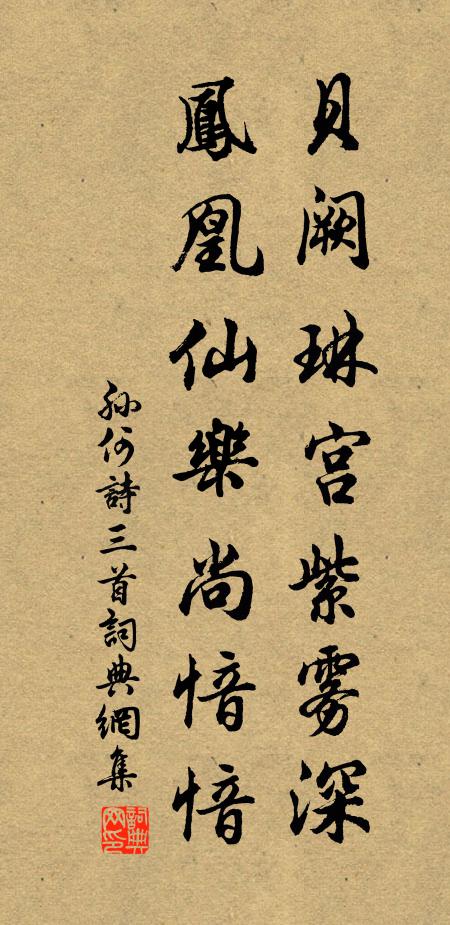 貝阙琳宫紫雾深
鳳凰仙樂尚愔愔
孫何詩三首詞典網集
詞典網印